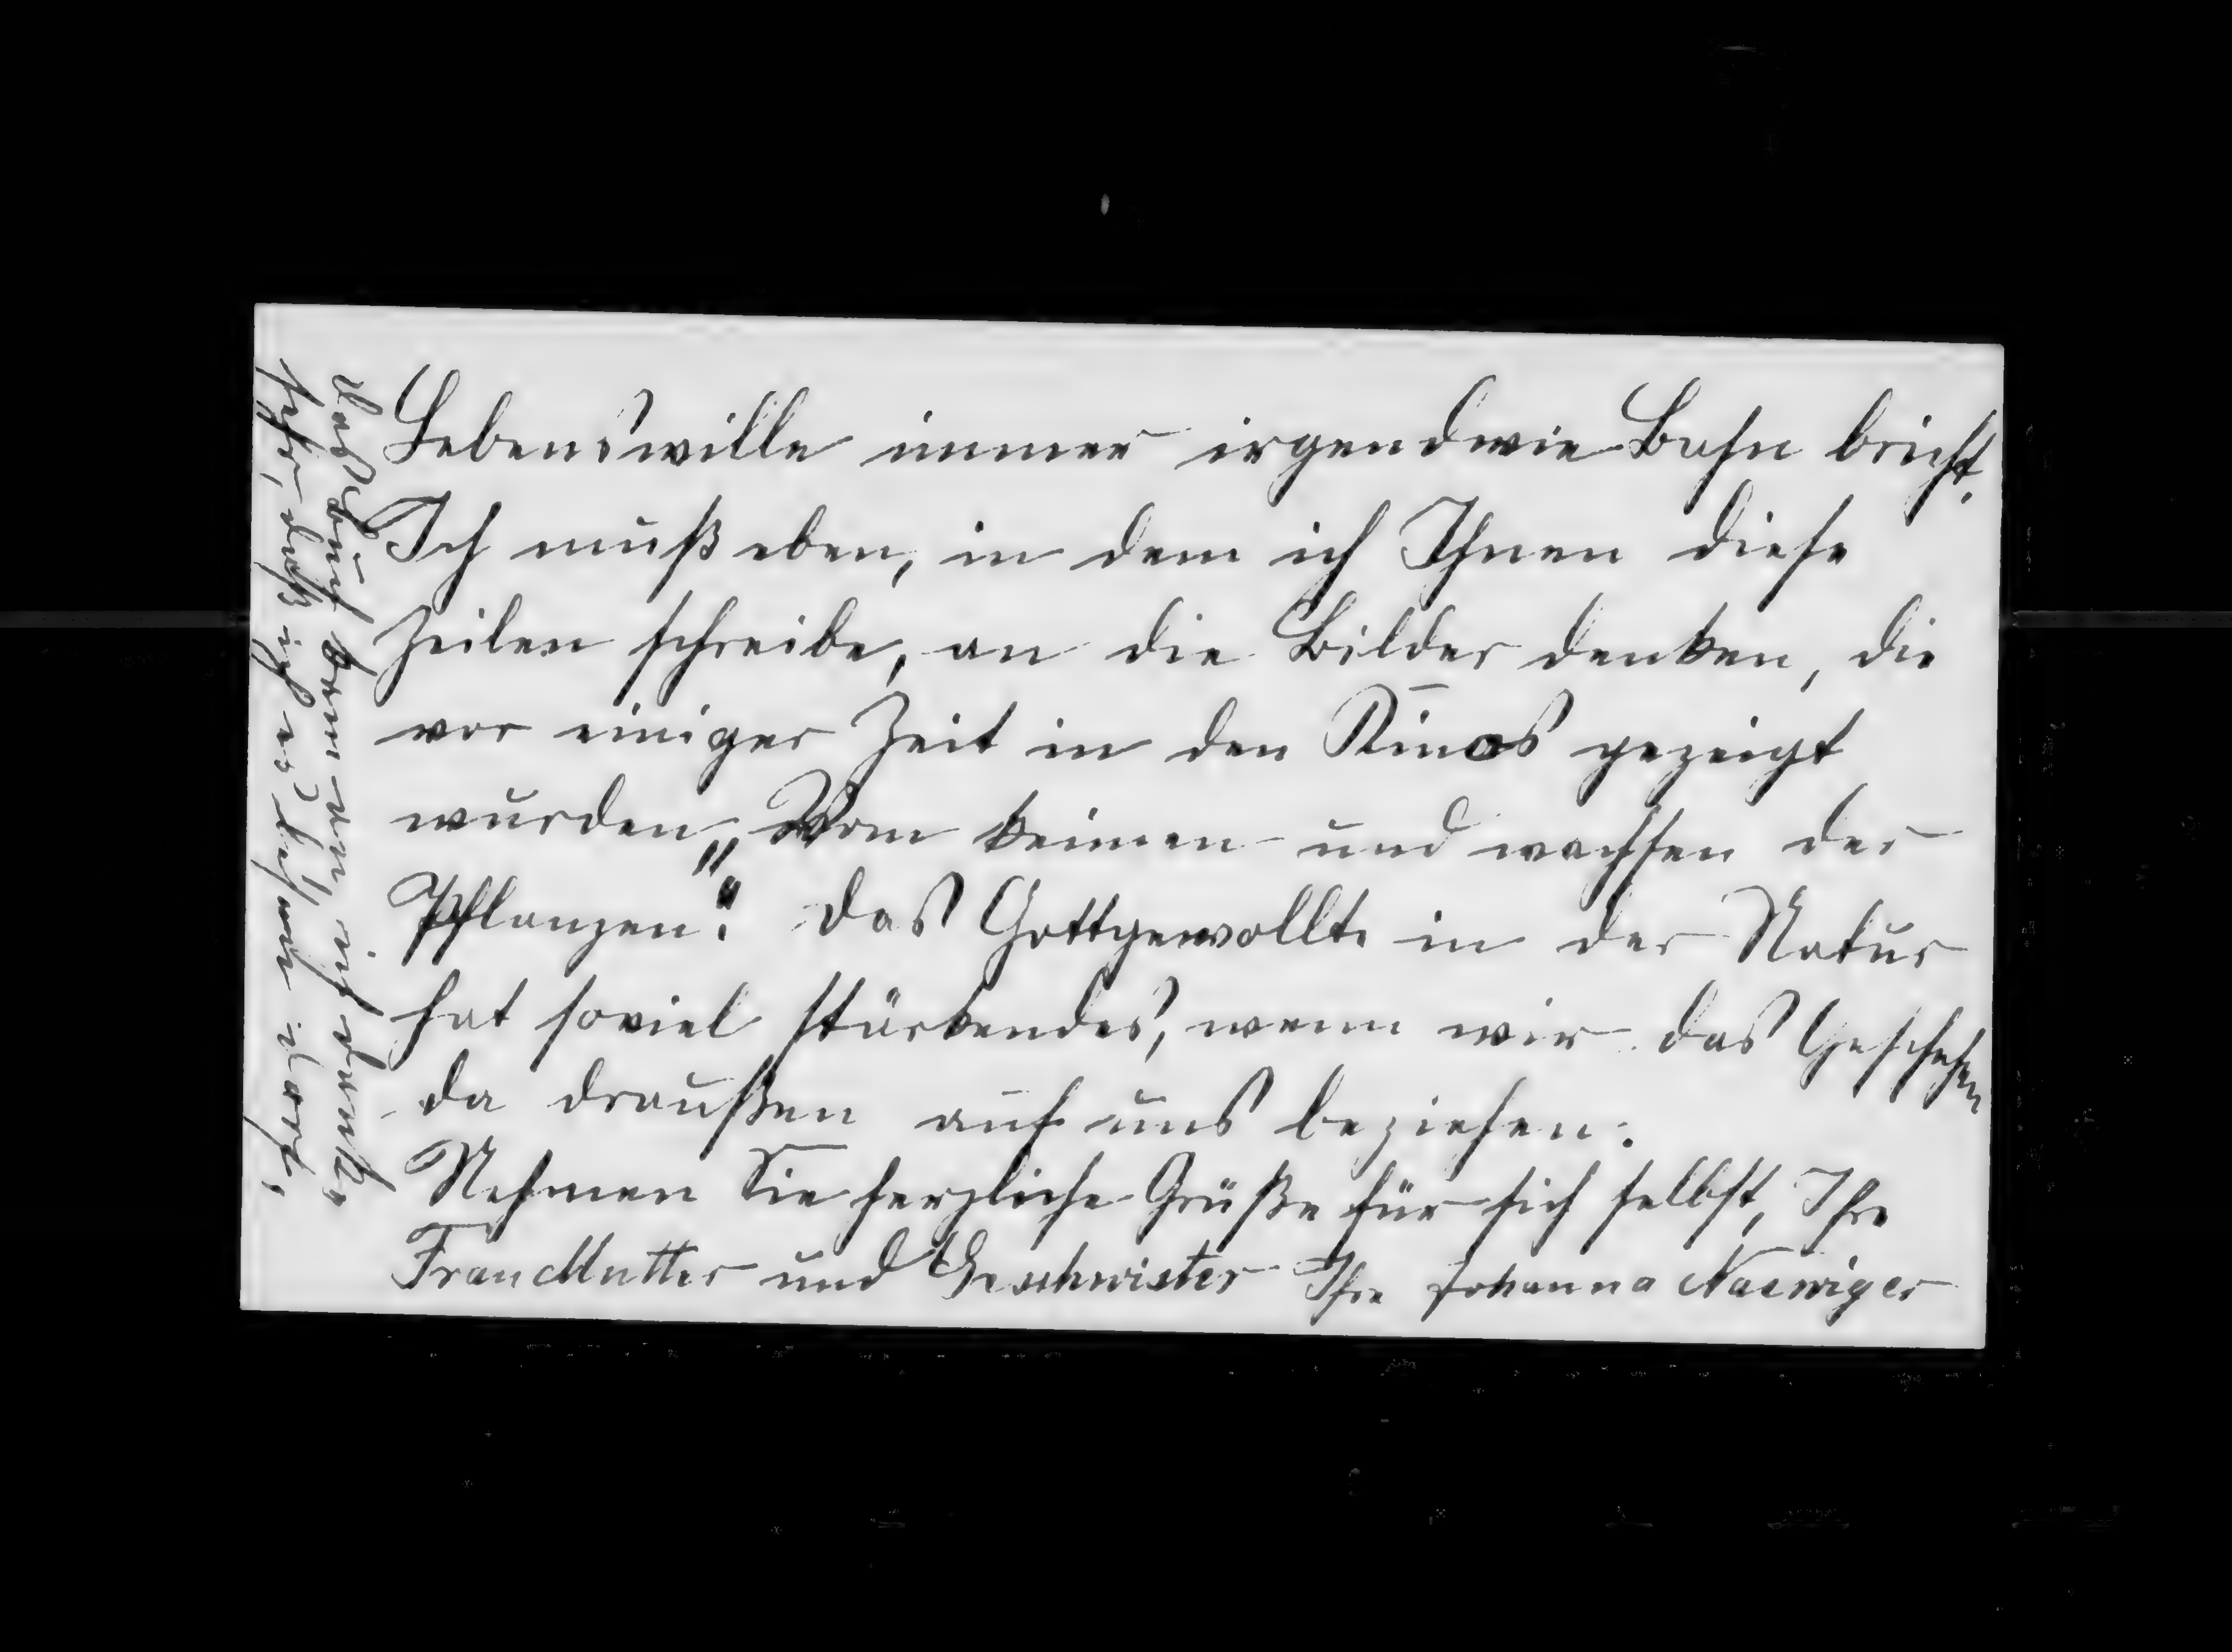 Lebenswille immer irgendwie Bahn bricht.
Ich muß eben, in dem ich Ihnen diese
Zeilen schreibe, an die Bilder denken, die
vor einiger Zeit in den Kinos gezeigt
wurden „Vom keimen und wachsen der
Pflanzen“. Das Gottgewollte in der Natur
hat soviel stärkendes, wenn wir das Geschehen
da draußen auf uns beziehen.
Nehmen Sie herzliche Grüße für sich selbst, Ihre
Frau Mutter und Geschwister Ihre Johanna Naewiger
Das Buch kam an, ich danke
sehr, daß ich es